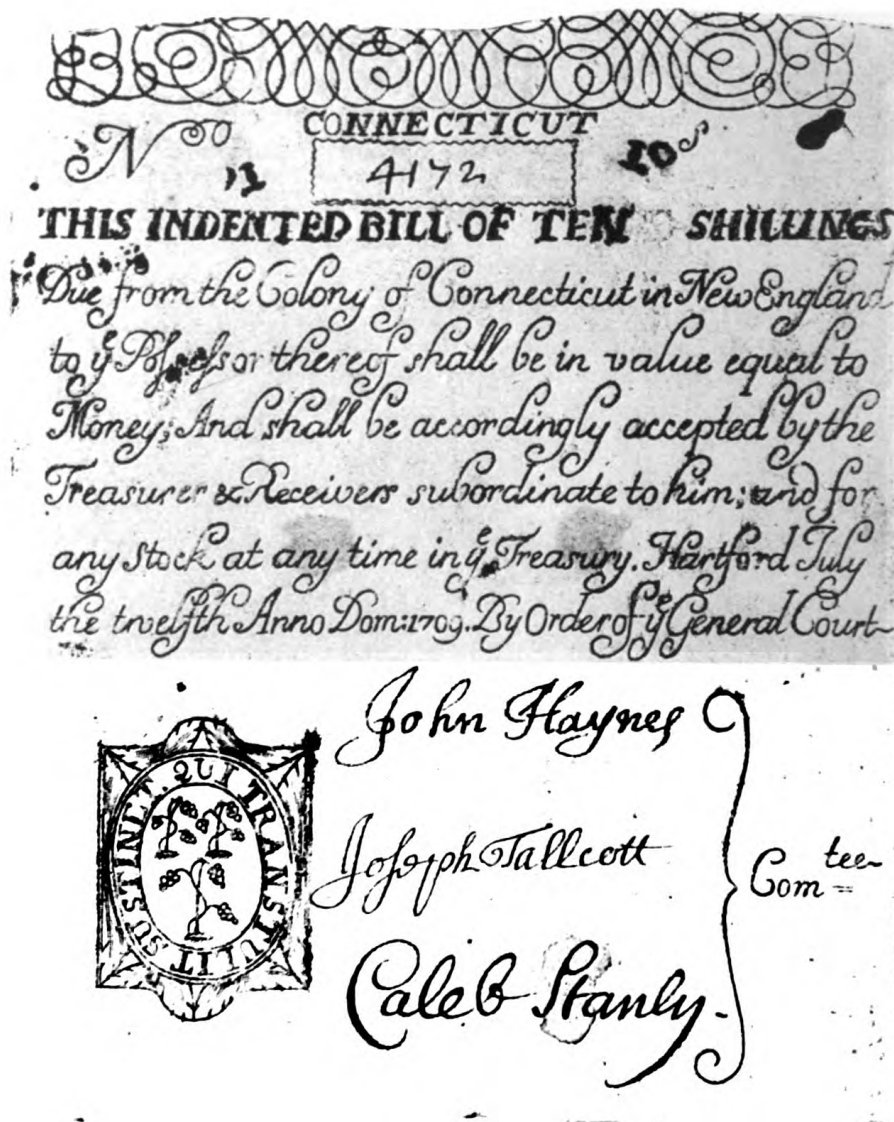 CONNECTICUT
No 4172 10s
THIS INDENTED BILL OF TEN SHILLINGS
Due from the Colony of Connecticut in New England
to yᵉ Poſseſsor thereof shall be in value equal to
Money; And shall be accordingly accepted by the
Treasurer & Receivers subordinate to him; and for
any Stock at any time in yᵉ Treasury. Hartford July
the twelfth Anno Dom: 1709. By Order of yᵉ General Court
SUSTINET. QUI TRANSTULIT
John Haynes
Joſeph Tallcott
Caleb Stanly.
Comᵗᵉᵉ